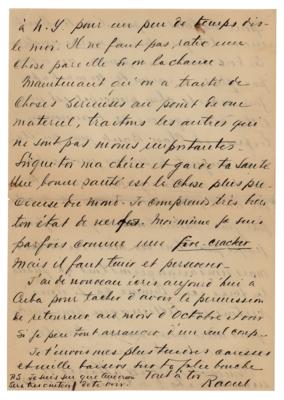 à N.Y. pour un peu de temps dis-
le moi. Il ne faut pas, rater une
chose pareille si on la chance
Maintenant qu'on a traité de
choses sérieuses au point de vue
materiel, traitons les autres qui
ne sont pas moins importantes
ma chère et garde ta santé
Une bonne santé est la chose plus pre-
cieuse du monde. Je comprends très bien
ton état de nerfs. Moi même je suis
parfois comme une fire-cracker
Mais il faut tenir et perseverer.
J'ai de nouveau écris aujourd'hui à
Cuba pour tacher d'avoir la permission
de retourner au mois d'Octobre et voir
Si je peu tout arranger d'un seul coup.
Je t'envoi mes plus tendres caresses
et mille baisers sur ta bouche
Tout à toi
Raoul
P.S. Je suis sur que
de te voir.